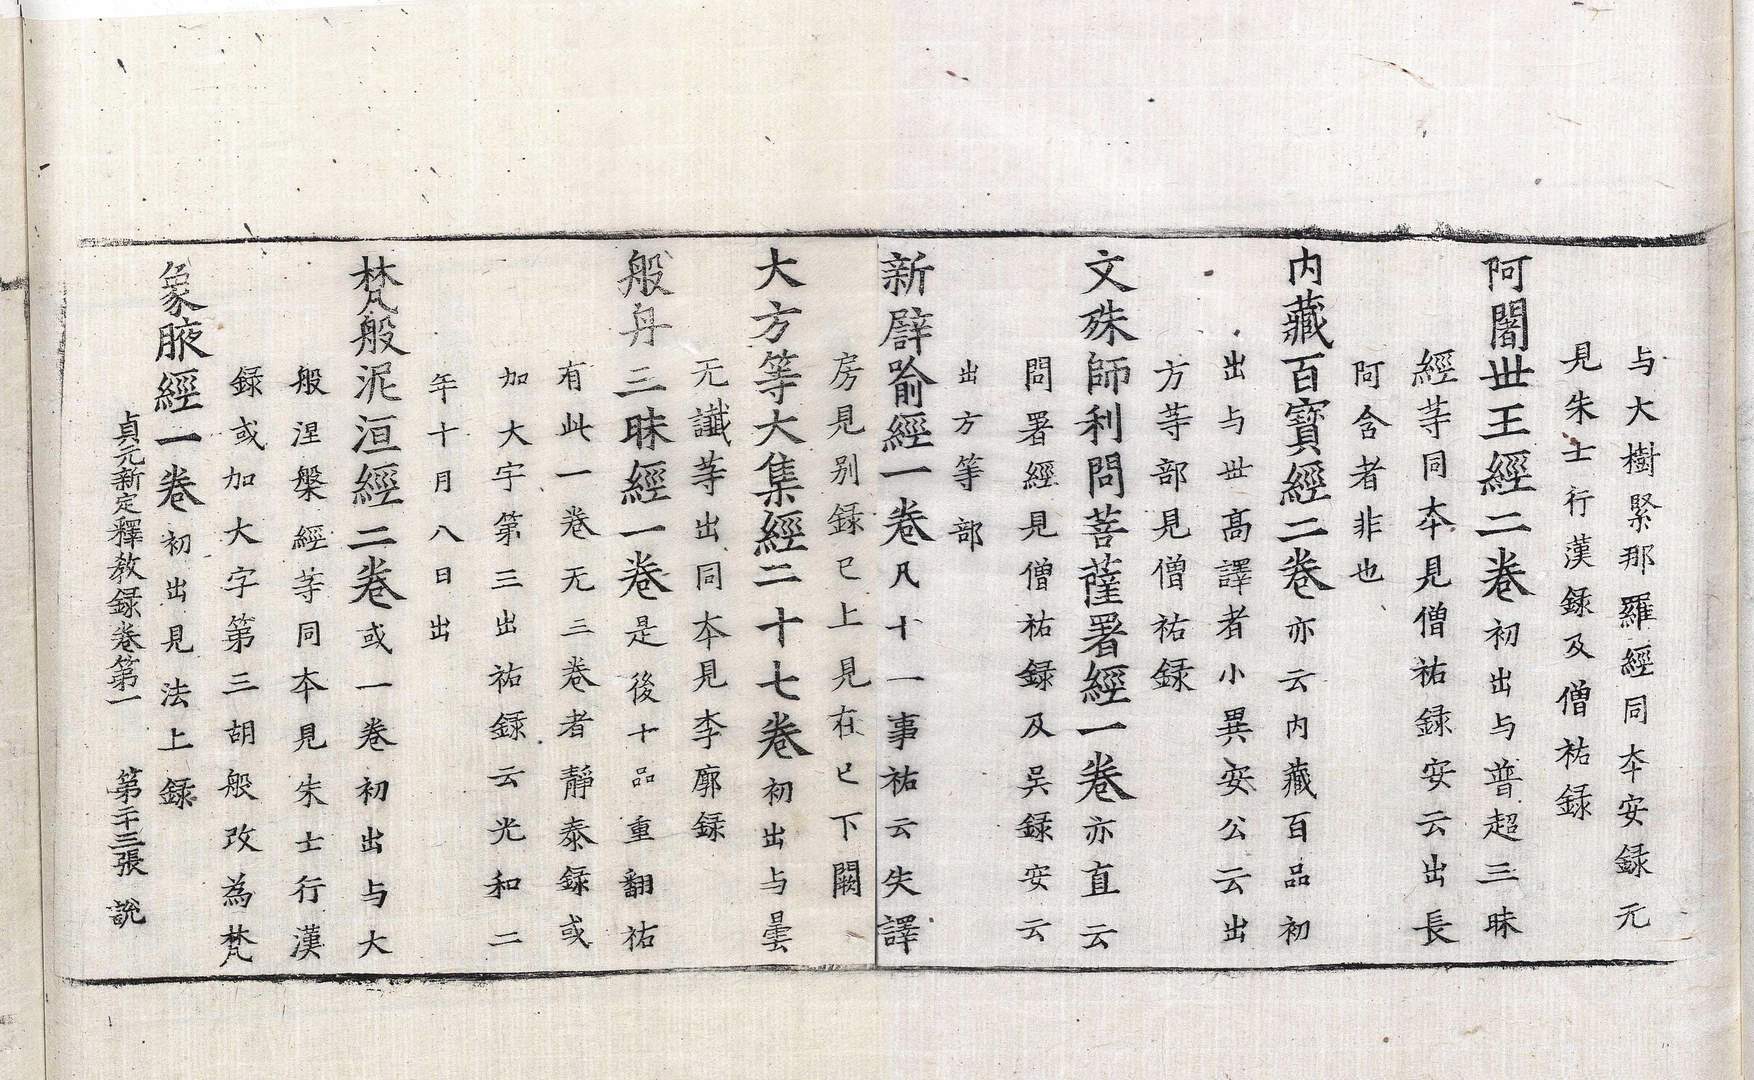 与大樹緊那羅經同夲安録元
見朱士行漢録及僧祐録
阿闍丗王經二卷初出与普超三昧
經䓁同夲見僧祐録安云出長
阿含者非也
内藏百寶經二卷亦云内藏百品初
出与丗髙譯者小異安公云出
方䓁部見僧祐録
文殊師利問菩薩署經一卷亦直云
問署經見僧祐録及吳録安云
出方等部
新譬喻經一卷凡十一事祐云失譯
房見别録已上見在已下闕
大方等大集經二十七卷初出与曇
无讖䓁出同夲見李廓録
般舟三昧經一卷是後十品重翻祐
有此一卷无三卷者靜泰録或
加大字第三出祐録云光和二
年十月八日出
梵般泥洹經二卷或一卷初出与大
般涅槃經等同夲見朱士行漢
録或加大字第三胡般改為梵
象腋經一卷初出見法上録
貞元新定釋教録卷第一 第二十三張 說